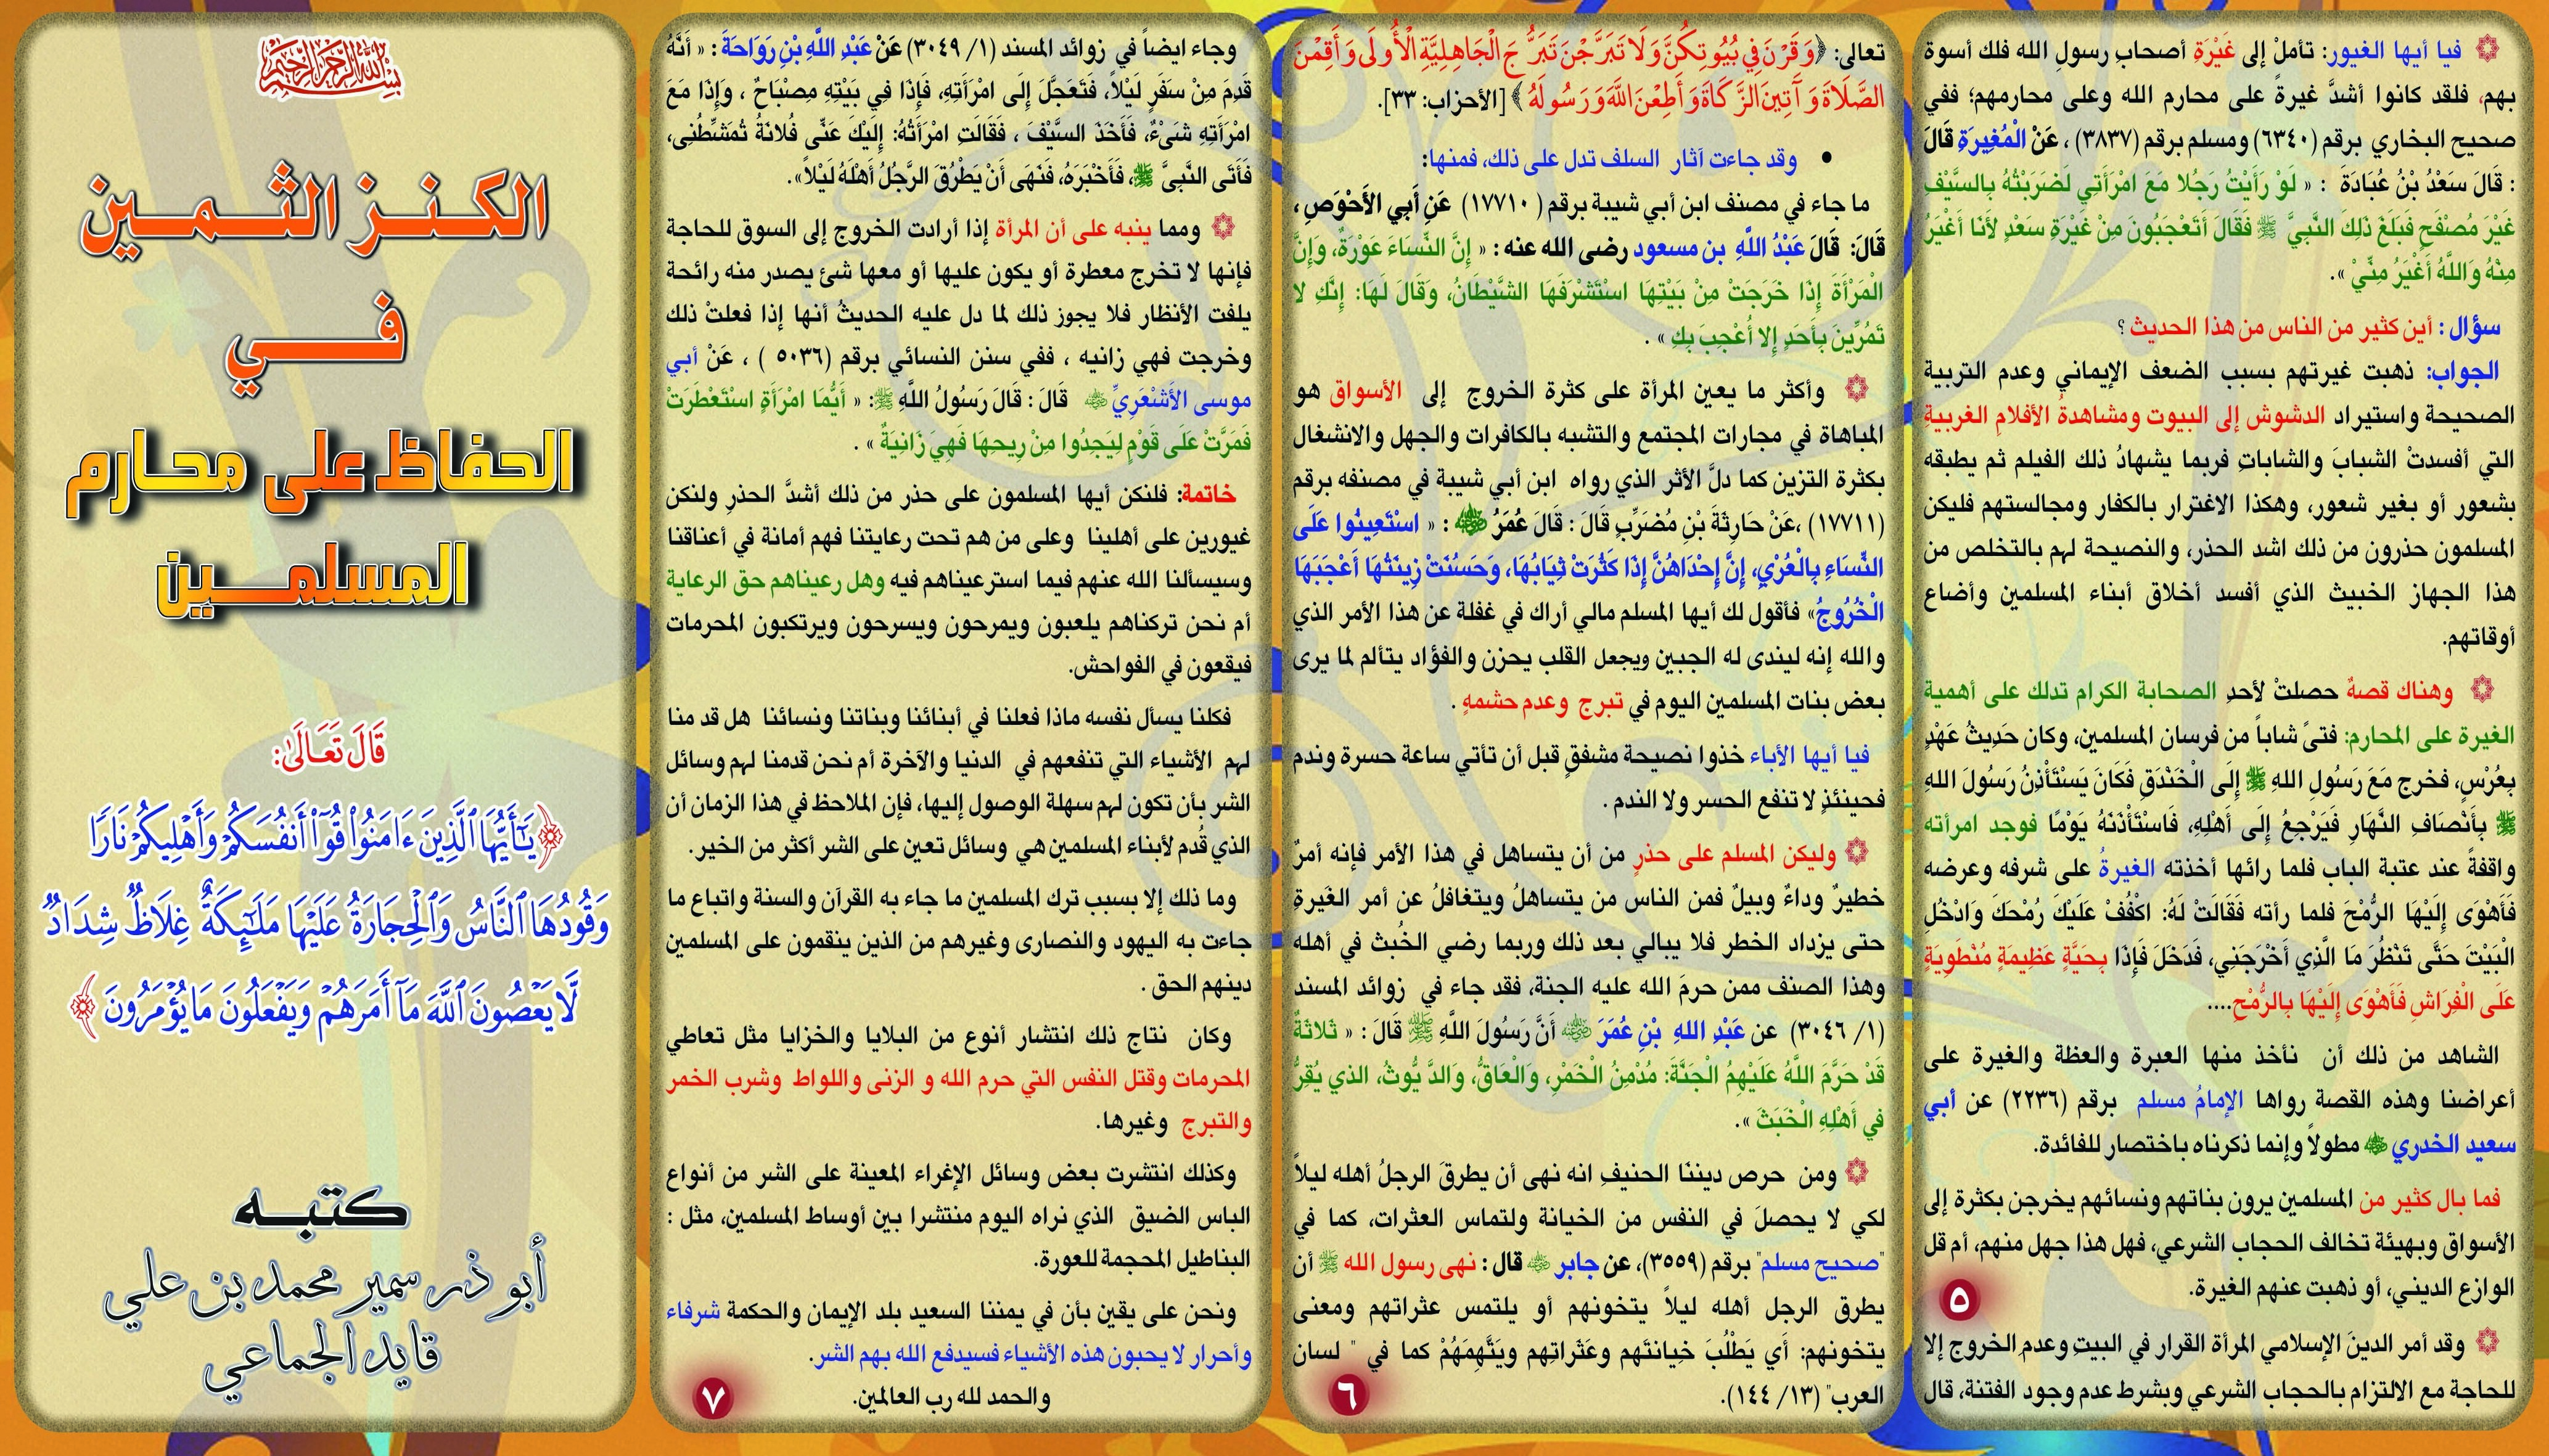 ۞ فيا أيها الغيور: تأملْ إلى غَيْرَةِ أصحابِ رسولِ الله فلك أسوة
بهم، فلقد كانوا أشدَّ غيرةً على محارم الله وعلى محارمهم؛ ففي
صحيح البخاري برقم (٦٣٤٠) ومسلم برقم (٣٨٣٧) ، عَنْ الْمُغِيرَةِ قَالَ
: قَالَ سَعْدُ بْنُ عُبَادَةَ : « لَوْ رَأَيْتُ رَجُلا مَعَ امْرَأَتِي لَضَرَبْتُهُ بِالسَّيْفِ
غَيْرَ مُصْفَحٍ فَبَلَغَ ذَلِكَ النَّبِيَّ ﷺ فَقَالَ أَتَعْجَبُونَ مِنْ غَيْرَةِ سَعْدٍ لأَنَا أَغْيَرُ
مِنْهُ وَاللَّهُ أَغْيَرُ مِنِّيْ ».
سؤال : أين كثير من الناس من هذا الحديث ؟
الجواب: ذهبت غيرتهم بسبب الضعف الإيماني وعدم التربية
الصحيحة واستيراد الدشوش إلى البيوت ومشاهدةُ الأفلامِ الغربيةِ
التي أفسدتْ الشبابَ والشاباتِ فربما يشهادُ ذلك الفيلم ثم يطبقه
بشعور أو بغير شعور، وهكذا الاغترار بالكفار ومجالستهم فليكن
المسلمون حذرون من ذلك اشد الحذر، والنصيحة لهم بالتخلص من
هذا الجهاز الخبيث الذي أفسد أخلاق أبناء المسلمين وأضاع
أوقاتهم.
۞ وهناك قصةٌ حصلتْ لأحدِ الصحابة الكرام تدلك على أهمية
الغيرة على المحارم: فتىً شاباً من فرسان المسلمين، وكان حَدِيثُ عَهْدٍ
بِعُرْسٍ، فخرج مَعَ رَسُولِ اللهِ ﷺ إِلَى الْخَنْدَقِ فَكَانَ يَسْتَأْذِنُ رَسُولَ اللهِ
ﷺ بِأَنْصَافِ النَّهَارِ فَيَرْجِعُ إِلَى أَهْلِهِ، فَاسْتَأْذَنَهُ يَوْمًا فوجد امرأته
واقفةً عند عتبة الباب فلما رائها أخذته الغيرةُ على شرفه وعرضه
فَأَهْوَى إِلَيْهَا الرُّمْحَ فلما رأته فَقَالَتْ لَهُ: اكْفُفْ عَلَيْكَ رُمْحَكَ وَادْخُلِ
الْبَيْتَ حَتَّى تَنْظُرَ مَا الَّذِي أَخْرَجَنِي، فَدَخَلَ فَإِذَا بِحَيَّةٍ عَظِيمَةٍ مُنْطَوِيَةٍ
عَلَى الْفِرَاشِ فَأَهْوَى إِلَيْهَا بِالرُّمْحِ....
الشاهد من ذلك أن نأخذ منها العبرة والعظة والغيرة على
أعراضنا وهذه القصة رواها الإمامُ مسلم برقم (٢٢٣٦) عن أبي
سعيد الخدري ﷺ مطولاً وإنما ذكرناه باختصار للفائدة.
فما بال كثير من المسلمين يرون بناتهم ونسائهم يخرجن بكثرة إلى
الأسواق وبهيئة تخالف الحجاب الشرعي، فهل هذا جهل منهم، أم قل
الوازع الديني، أو ذهبت عنهم الغيرة.
۞ وقد أمر الدينَ الإسلامي المرأة القرار في البيتِ وعدم الخروج إلا
للحاجة مع الالتزام بالحجاب الشرعي وبشرط عدم وجود الفتنة، قال
٥
تعالى: ﴿وَقَرْنَ فِي بُيُوتِكُنَّ وَلَا تَبَرَّجْنَ تَبَرُّجَ الْجَاهِلِيَّةِ الْأُولَى وَأَقِمْنَ
الصَّلَاةَ وَآَتِينَ الزَّكَاةَ وَأَطِعْنَ اللَّهَ وَرَسُولَهُ﴾ [الأحزاب: ٣٣].
• وقد جاءت آثار السلف تدل على ذلك، فمنها:
ما جاء في مصنف ابن أبي شيبة برقم ( ١٧٧١٠) عَنِ أَبِي الأَحْوَصِ ،
قَالَ: قَالَ عَبْدُ اللَّهِ بن مسعود رضى الله عنه : « إِنَّ النِّسَاءَ عَوْرَةٌ، وَإِنَّ
الْمَرْأَةَ إِذَا خَرَجَتْ مِنْ بَيْتِهَا اسْتَشْرَفَهَا الشَّيْطَانُ، وَقَالَ لَهَا: إِنَّكِ لا
تَمُرِّينَ بِأَحَدٍ إِلا أُعْجِبَ بِكِ » .
۞ وأكثر ما يعين المرأة على كثرة الخروج إلى الأسواق هو
المباهاة في مجارات المجتمع والتشبه بالكافرات والجهل والانشغال
بكثرة التزين كما دلَّ الأثر الذي رواه ابن أبي شيبة في مصنفه برقم
(١٧٧١١) ،عَنْ حَارِثَةَ بْنِ مُضَرِّبٍ قَالَ : قَالَ عُمَرُ ﷺ : « اسْتَعِينُوا عَلَى
النِّسَاءِ بِالْعُرْيِ، إِنَّ إِحْدَاهُنَّ إِذَا كَثُرَتْ ثِيَابُهَا، وَحَسُنَتْ زِينَتُهَا أَعْجَبَهَا
الْخُرُوجُ» فأقول لك أيها المسلم مالي أراك في غفلة عن هذا الأمر الذي
والله إنه ليندى له الجبين ويجعل القلب يحزن والفؤاد يتألم لما يرى
بعض بنات المسلمين اليوم في تبرج وعدم حشمهٍ .
فيا أيها الأباء خذوا نصيحة مشفقٍ قبل أن تأتي ساعة حسرة وندم
فحينئذٍ لا تنفع الحسر ولا الندم .
۞ وليكن المسلم على حذرٍ من أن يتساهل في هذا الأمر فإنه أمرٌ
خطيرٌ وداءٌ وبيلٌ فمن الناس من يتساهلُ ويتغافلُ عن أمر الغَيرةِ
حتى يزداد الخطر فلا يبالي بعد ذلك وربما رضي الخُبث في أهله
وهذا الصنف ممن حرمَ الله عليه الجنة، فقد جاء في زوائد المسند
(١/ ٣٠٤٦) عن عَبْدِ اللهِ بْنِ عُمَرَ ﵁ أَنَّ رَسُولَ اللَّهِ ﷺ قَالَ : « ثَلاثَةٌ
قَدْ حَرَّمَ اللَّهُ عَلَيْهِمُ الْجَنَّةَ: مُدْمِنُ الْخَمْرِ، وَالْعَاقُّ، وَالدَّيُّوثُ، الذي يُقِرُّ
في أَهْلِهِ الْخَبَثَ ».
۞ ومن حرص ديننَا الحنيفِ انه نهى أن يطرقَ الرجلُ أهله ليلاً
لكي لا يحصلَ في النفس من الخيانة ولتماس العثرات، كما في
"صحيح مسلم" برقم (٣٥٥٩)، عن جابر ﷺ قال : نهى رسول الله ﷺ أن
يطرق الرجل أهله ليلاً يتخونهم أو يلتمس عثراتهم ومعنى
يتخونهم: أي يَطْلُبَ خِيانَتَهم وعَثَراتِهم ويَتَّهِمَهُمْ كما في " لسان
العرب" (١٣/ ١٤٤).
٦
وجاء ايضاً في زوائد المسند (١/ ٣٠٤٩) عَنْ عَبْدِ اللَّهِ بْنِ رَوَاحَةَ : « أَنَّهُ
قَدِمَ مِنْ سَفَرٍ لَيْلاً، فَتَعَجَّلَ إِلَى امْرَأَتِهِ، فَإِذَا فِي بَيْتِهِ مِصْبَاحٌ ، وَإِذَا مَعَ
امْرَأَتِهِ شَىْءٌ، فَأَخَذَ السَّيْفَ ، فَقَالَتِ امْرَأَتُهُ: إِلَيْكَ عَنِّى فُلانَةُ تُمَشِّطُنِى،
فَأَتَى النَّبِىَّ ﷺ، فَأَخْبَرَهُ، فَنَهَى أَنْ يَطْرُقَ الرَّجُلُ أَهْلَهُ لَيْلاً».
۞ ومما ينبه على أن المرأة إذا أرادت الخروج إلى السوق للحاجة
فإنها لا تخرج معطرة أو يكون عليها أو معها شئ يصدر منه رائحة
يلفت الأنظار فلا يجوز ذلك لما دل عليه الحديثُ أنها إذا فعلتْ ذلك
وخرجت فهي زانيه ، ففي سنن النسائي برقم (٥٠٣٦ ) ، عَنْ أبي
موسى الأَشْعَرِيِّ ﷺ قَالَ : قَالَ رَسُولُ اللَّهِ ﷺ: « أَيُّمَا امْرَأَةٍ اسْتَعْطَرَتْ
فَمَرَّتْ عَلَى قَوْمٍ لِيَجِدُوا مِنْ رِيحِهَا فَهِيَ زَانِيَةٌ » .
خاتمة: فلنكن أيها المسلمون على حذر من ذلك أشدَّ الحذرِ ولنكن
غيورين على أهلينا وعلى من هم تحت رعايتنا فهم أمانة في أعناقنا
وسيسألنا الله عنهم فيما استرعيناهم فيه وهل رعيناهم حق الرعاية
أم نحن تركناهم يلعبون ويمرحون ويسرحون ويرتكبون المحرمات
فيقعون في الفواحش.
فكلنا يسأل نفسه ماذا فعلنا في أبنائنا وبناتنا ونسائنا هل قد منا
لهم الأشياء التي تنفعهم في الدنيا والآخرة أم نحن قدمنا لهم وسائل
الشر بأن تكون لهم سهلة الوصول إليها، فإن الملاحظ في هذا الزمان أن
الذي قُدم لأبناء المسلمين هي وسائل تعين على الشر أكثر من الخير.
وما ذلك إلا بسبب ترك المسلمين ما جاء به القرآن والسنة واتباع ما
جاءت به اليهود والنصارى وغيرهم من الذين ينقمون على المسلمين
دينهم الحق .
وكان نتاج ذلك انتشار أنوع من البلايا والخزايا مثل تعاطي
المحرمات وقتل النفس التي حرم الله و الزنى واللواط وشرب الخمر
والتبرج وغيرها.
وكذلك انتشرت بعض وسائل الإغراء المعينة على الشر من أنواع
الباس الضيق الذي نراه اليوم منتشرا بين أوساط المسلمين، مثل :
البناطيل المحجمة للعورة.
ونحن على يقين بأن في يمننا السعيد بلد الإيمان والحكمة شرفاء
وأحرار لا يحبون هذه الأشياء فسيدفع الله بهم الشر.
والحمد لله رب العالمين.
٧
بسم الله الرحمن الرحيم
الكنز الثمين
في
الحفاظ على محارم
المسلمين
قَالَ تَعَالَىٰ:
﴿يَٰٓأَيُّهَا ٱلَّذِينَ ءَامَنُوا۟ قُوٓا۟ أَنفُسَكُمْ وَأَهْلِيكُمْ نَارًا
وَقُودُهَا ٱلنَّاسُ وَٱلْحِجَارَةُ عَلَيْهَا مَلَٰٓئِكَةٌ غِلَاظٌ شِدَادٌ
لَّا يَعْصُونَ ٱللَّهَ مَآ أَمَرَهُمْ وَيَفْعَلُونَ مَا يُؤْمَرُونَ﴾
كتبه
أبو ذر سمير محمد بن علي
قايد الجماعي